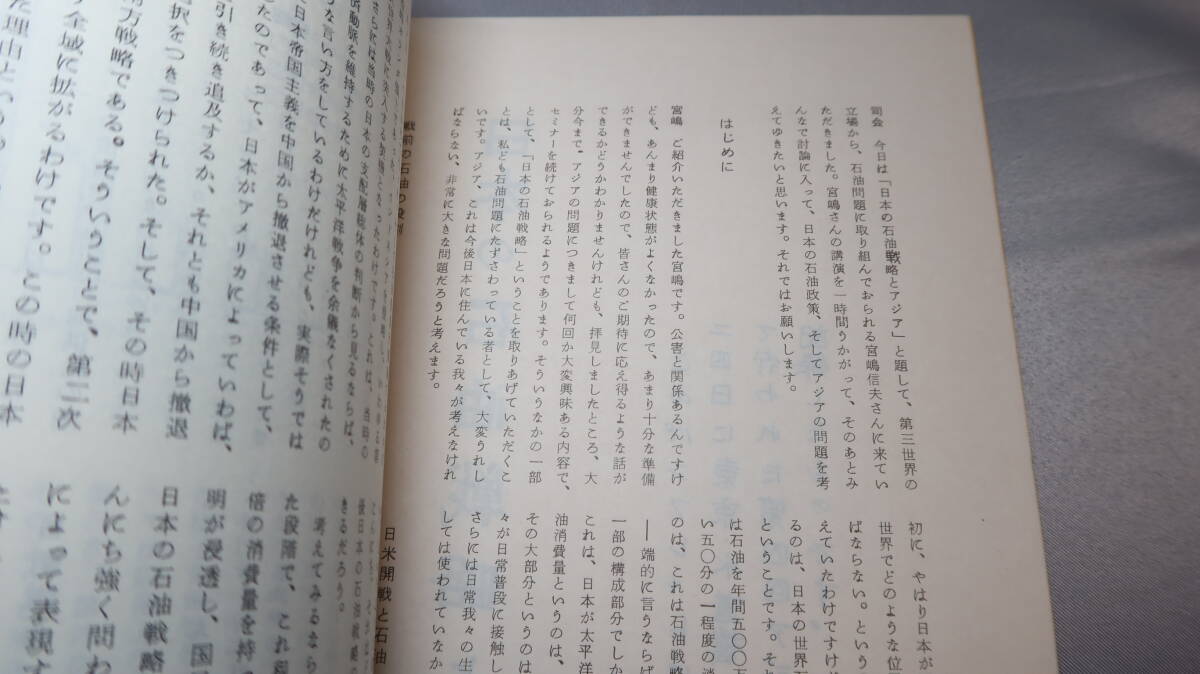 司会　今日は「日本の石油戦略とアジア」と題して、第三世界の
立場から、石油問題に取り組んでおられる宮嶋信夫さんに来てい
ただきました。宮嶋さんの講演を一時間うかがって、そのあとみ
んなで討論に入って、日本の石油政策、そしてアジアの問題を考
えてゆきたいと思います。それではお願いします。
はじめに
宮嶋　ご紹介いただきました宮嶋です。公害と関係あるんですけ
ども、あんまり健康状態がよくなかったので、あまり十分な準備
ができませんでしたので、皆さんのご期待に応え得るような話が
できるかどうかわかりませんけれども、拝見しましたところ、大
分今まで、アジアの問題につきまして何回か大変興味ある内容で、
セミナーを続けておられるようであります。そういうなかの一部
として、「日本の石油戦略」ということを取りあげていただくこ
とは、私ども石油問題にたずさわっている者として、大変うれし
いです。アジア、これは今後日本に住んでいる我々が考えなけれ
ばならない、非常に大きな問題だろうと考えます。
戦前の石油の役割
初に、やはり日本が
世界でどのような位
ばならない。という
えていたわけですけ
るのは、日本の世界
ということです。そ
は石油を年間五〇〇万
い五〇分の一程度の
のは、これは石油戦略
── 端的に言うならば
一部の構成部分でしか
これは、日本が太平洋
油消費量というのは、
その大部分というのは
々が日常普段に接触し
さらには日常我々の生
しては使われていなか
日米開戦と石油
さらには当時の日本の支配層総体の判断から見るならば、
済動脈を維持するために太平洋戦争を余儀なくされたの
な言い方をしているわけだけれども、実際そうでは
日本帝国主義を中国から撤退させる条件として、
たのであって、日本がアメリカによっていわば、
引き続き追及するか、それとも中国から撤退
択をつきつけられた。そして、その時日本
南方戦略である。そういうことで、第二次
ア全域に拡がるわけです。この時の日本
後日本の石油戦略
きるだろう。
考えてみるなら
た段階で、これ
倍の消費量を持
明が浸透し、国
日本の石油戦略
んにち強く問わ
によって表現す